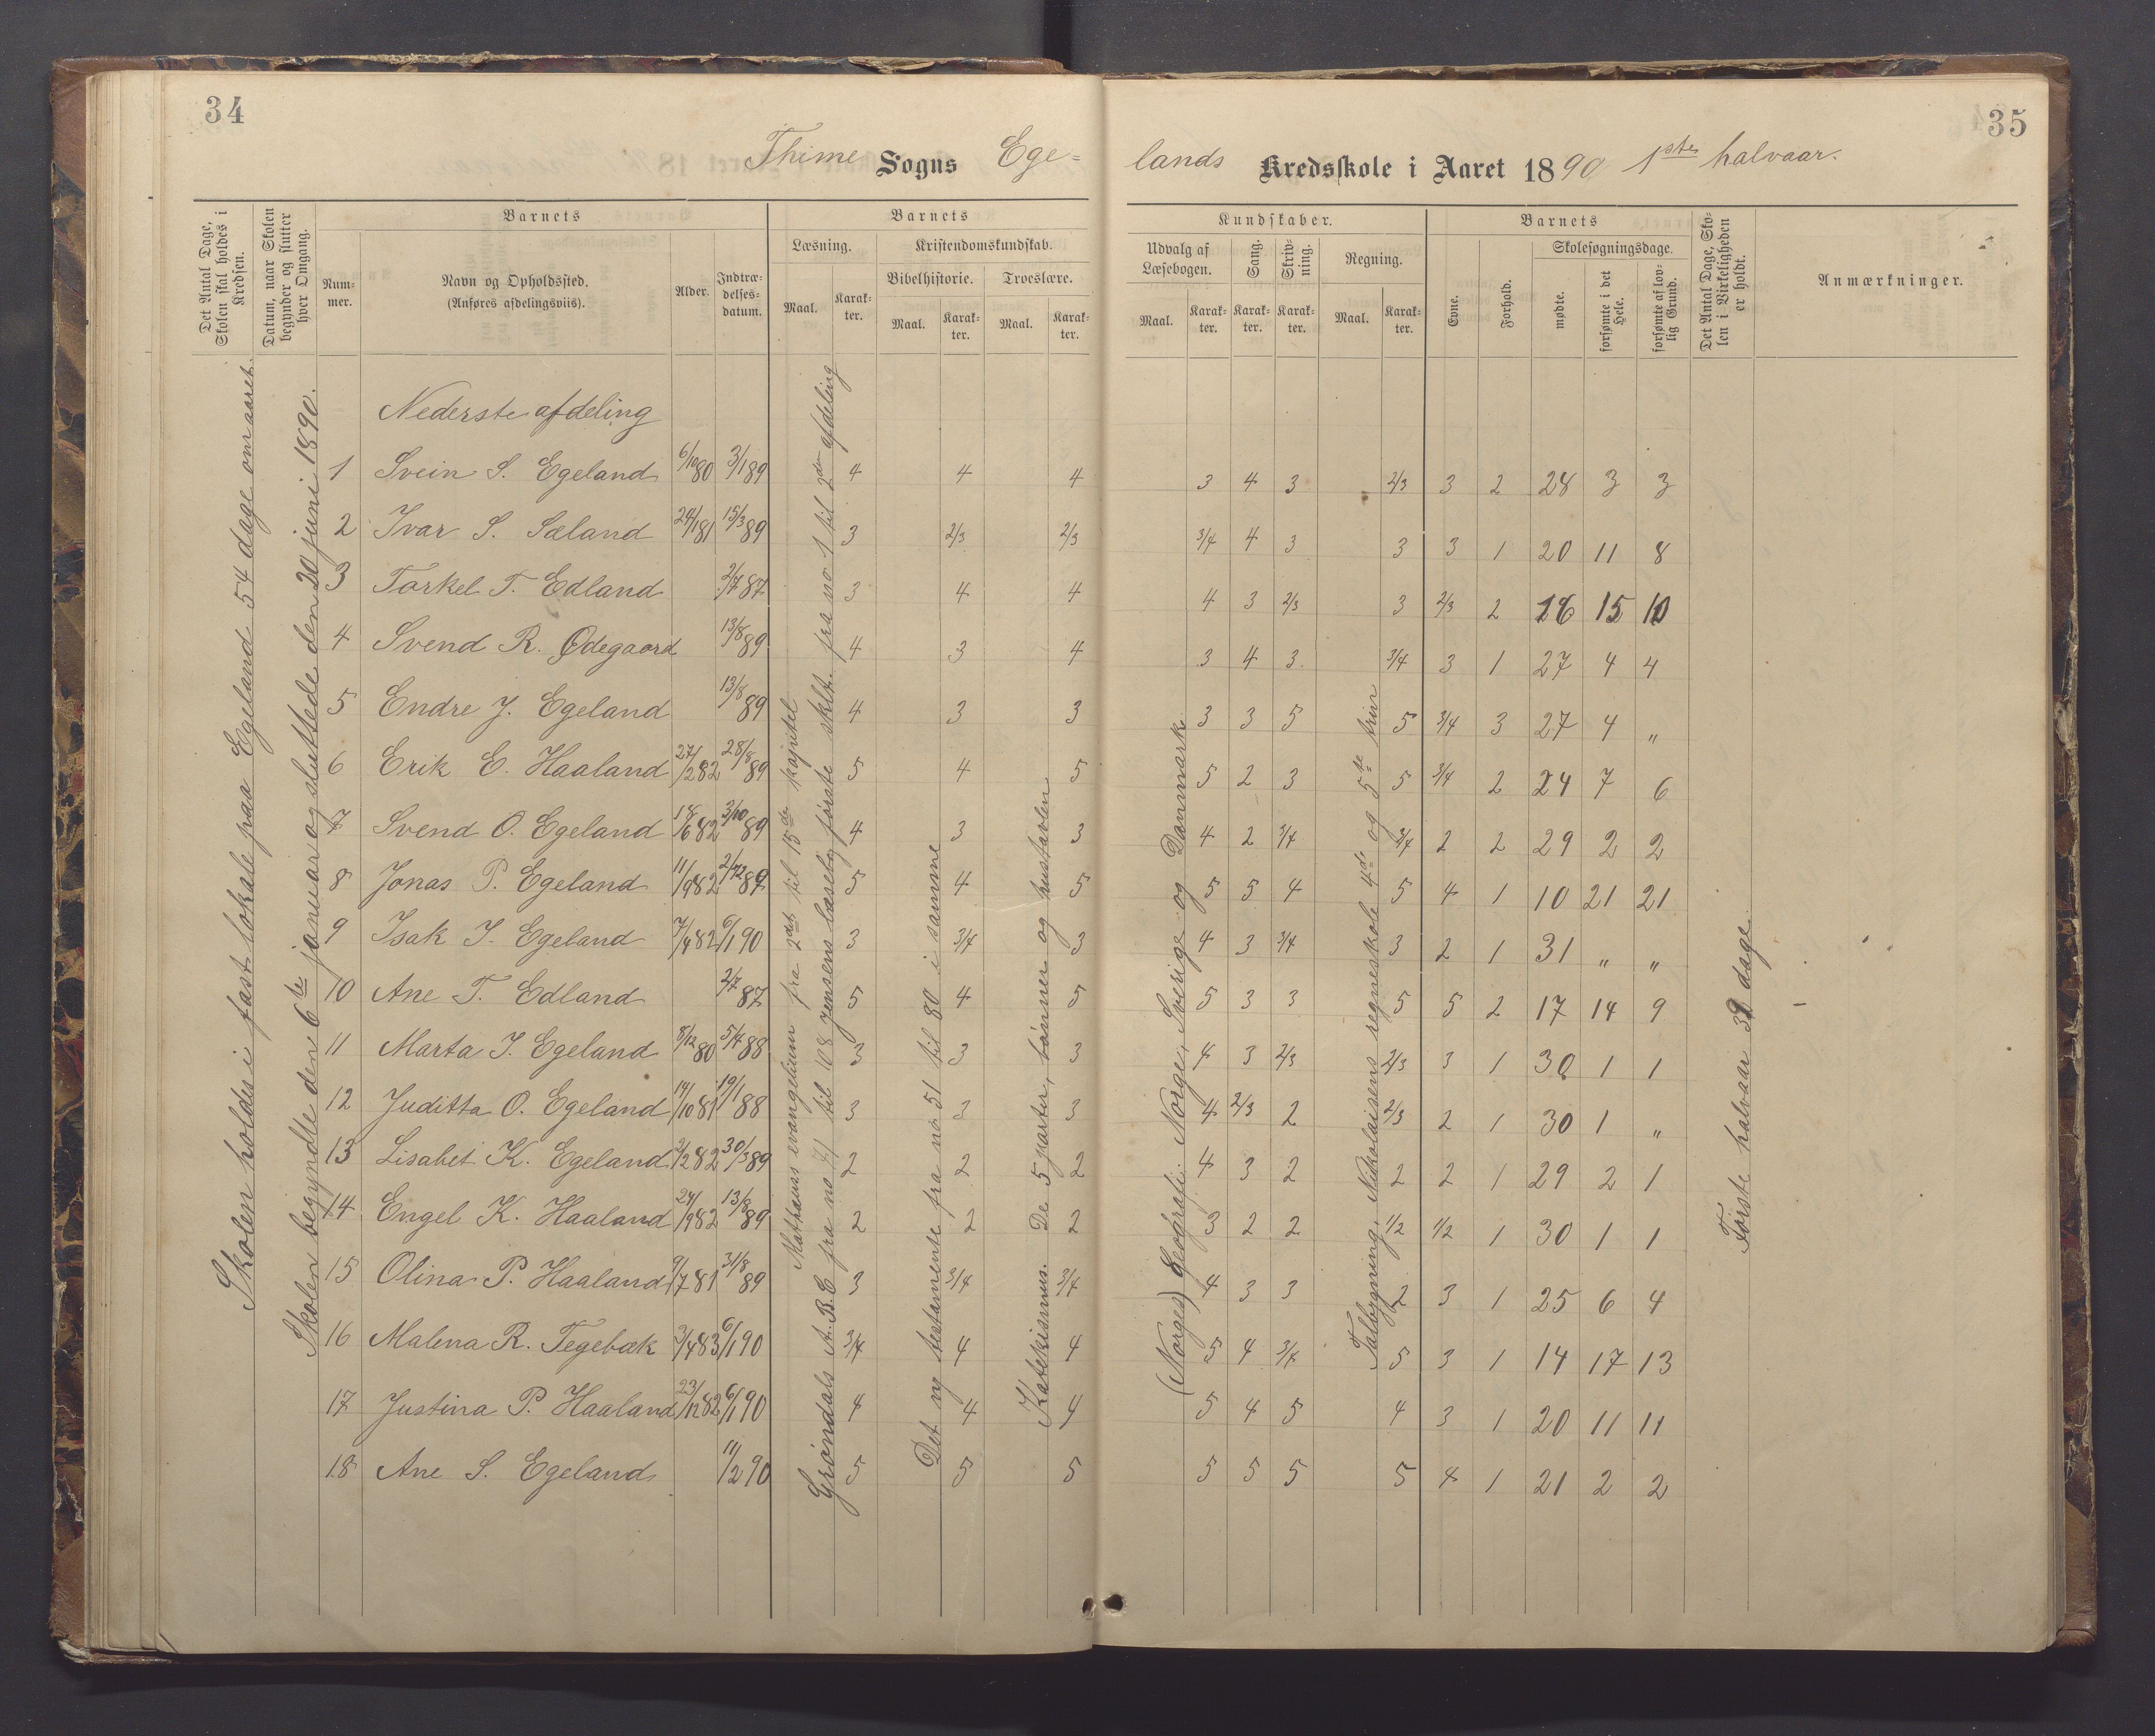 34
35
Thime Sogns Ege=
lands Kredsskole i Aaret 1890 1ste halvaar.
Det Antal Dage, Skolen skal holdes i Kredsen.
Datum, naar Skolen begynder og slutter hver Omgang.
Barnets
Nummer.
Navn og Opholdssted.
(Anføres afdelingsviis).
Alder.
Indtrædelses-datum.
Barnets
Læsning.
Kristendomskundskab.
Bibelhistorie.
Troeslære.
Maal.
Karakter.
Maal.
Karakter.
Maal.
Karakter.
Kundskaber.
Udvalg af Læsebogen.
Sang.
Skrivning.
Regning.
Maal.
Karakter.
Karakter.
Karakter.
Maal.
Karakter.
Barnets
Evne.
Forhold.
Skolesøgningsdage.
mødte.
forsømte i det Hele.
forsømte af lovlig Grund.
Det Antal Dage, Skolen i Virkeligheden er holdt.
Anmærkninger.
Skolen holdes i fast lokale paa Egeland 54 dage om aaret.
Skolen begyndte den 6te januar og sluttede den 20 juni 1890.
Mathæus evangelium fra 2det til 15de kapitel
Grøndals A.B.C fra no 41 til 108 Jensens læsebog første skbt. fra no 1 til 2den afdeling
Det ny testamente fra no 51 til 80 i samme
Katekismus. De 5 parter, bønner og hustavlen
(Norges) Geografi: Norge, Sverige og Danmark.
Talbygning, Nikolaisens regneskole 4de og 5te trin
Første halvaar 32 dage.
Nederste afdeling
1 Svein S. Egeland 6/10 80 3/1 89 4 4 4 3 4 3 2/3 3 2 28 3 3
2 Ivar S. Sæland 24/1 81 15/3 89 3 2/3 2/3 3/4 4 3 3 3 1 20 11 8
3 Torkel T. Edland 2/7 87 3 4 4 4 3 2/3 3 2/3 2 16 15 10
4 Svend R. Ødegaard 13/8 89 4 3 4 3 4 3 3/4 3 1 27 4 4
5 Endre J. Egeland 13/8 89 4 3 3 3 3 5 5 3/4 3 27 4 "
6 Erik E. Haaland 27/2 82 28/8 89 5 4 5 5 2 3 5 3/4 2 24 7 6
7 Svend O. Egeland 18/6 82 3/10 89 4 3 3 4 2 3/4 3/4 2 2 29 2 2
8 Jonas P. Egeland 11/9 82 2/12 89 5 4 5 5 5 4 5 4 1 10 21 21
9 Isak I. Egeland 7/4 82 6/1 90 3 3/4 3 4 3 3/4 3 2 1 31 " "
10 Ane T. Edland 2/7 87 5 4 5 5 3 3 5 5 2 17 14 9
11 Marta I. Egeland 8/12 80 5/4 88 3 3 3 4 3 2/3 2/3 3 1 30 1 1
12 Juditta O. Egeland 14/10 81 19/1 88 3 3 3 4 2/3 2 2/3 2 1 30 1 "
13 Lisabet K. Egeland 2/2 82 30/3 89 2 2 2 4 3 2 2 2 1 29 2 1
14 Engel K. Haaland 24/9 82 13/8 89 2 2 2 3 2 2 1/2 1/2 1 30 1 1
15 Olina P. Haaland 9/7 81 31/8 89 3 3/4 3/4 4 3 3 2 3 1 25 6 4
16 Malena R. Tegebæk 3/4 83 6/1 90 3/4 4 4 5 4 3/4 5 3 1 14 17 13
17 Justina P. Haaland 23/12 82 6/1 90 4 4 4 5 4 5 4 3 1 20 11 11
18 Ane S. Egeland 11/2 90 5 5 5 5 5 5 5 4 1 21 2 2